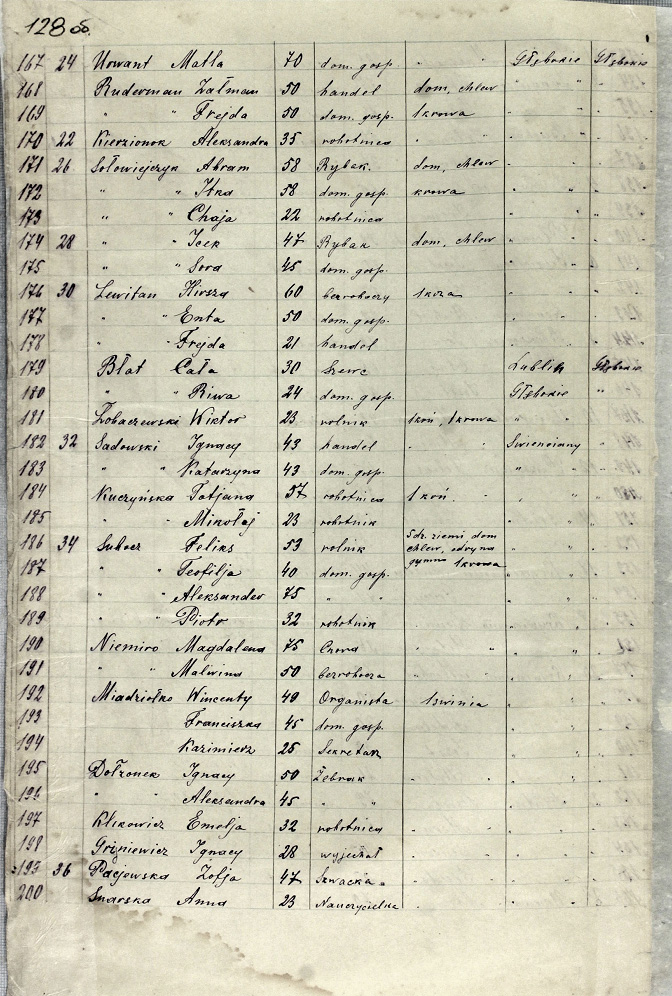 128 об.
167 24 Nowant Matla 70 dom. gosp. " " Głębokie Głębokie
168 Ruderman Załman 50 handel dom, chlew " " "
169 " " Frejda 50 dom. gosp. 1 krowa " " "
170 22 Kierzionok Aleksandra 35 robotnica " " " " "
171 26 Sołowiejczyk Abram 58 Rybak. dom, chlew " " "
172 " " Itka 58 dom. gosp. krowa " " "
173 " " Chaja 22 robotnica " " "
174 28 " " Icek 47 Rybak dom, chlew " " "
175 " " Sora 45 dom. gosp. " " "
176 30 Lewitan Hirsza 60 bezroboczy 1 koza " " "
177 " " Enta 50 dom. gosp. " " "
178 " " Frejda 21 handel " " "
179 Błat Cała 30 Szewc Lublin Głębokie
180 " " Riwa 24 dom. gosp. Głębokie "
181 Żobaczewski Wiktor 23 rolnik 1 koń, 1 krowa " " "
182 32 Sadowski Ignacy 43 handel " " Swienciany "
183 " " Katarzyna 43 dom. gosp. " " "
184 Kuczyńska Tatjana 57 robotnica 1 koń. " " "
185 " " Mikołaj 23 robotnik " " "
186 34 Subocz Feliks 53 rolnik 5 dz. ziemi, dom
chlew, odryna
gumno 1 krowa " " "
187 " " Teofilja 40 dom. gosp. " " "
188 " " Aleksander 75 " " " " "
189 " " Piotr 32 robotnik " " "
190 Niemiro Magdalena 75 Chora " " " " "
191 " " Malwina 50 bezrobocza " " " "
192 Miadziołko Wincenty 49 Organista 1 świnia " " "
193 Franciszka 45 dom. gosp. " " "
194 Kazimierz 25 Sekretarz " " "
195 Dołżonek Ignacy 50 Żebrak " " " " "
196 " " Aleksandra 45 " " " " "
197 Klikowicz Emelja 32 robotnica " " " " "
198 Gryniewicz Ignacy 28 wyjechał " " " " "
199 36 Pacjewska Zofja 47 Szwaczka " " " " "
200 Snarska Anna 23 Nauczycielka " " " " "